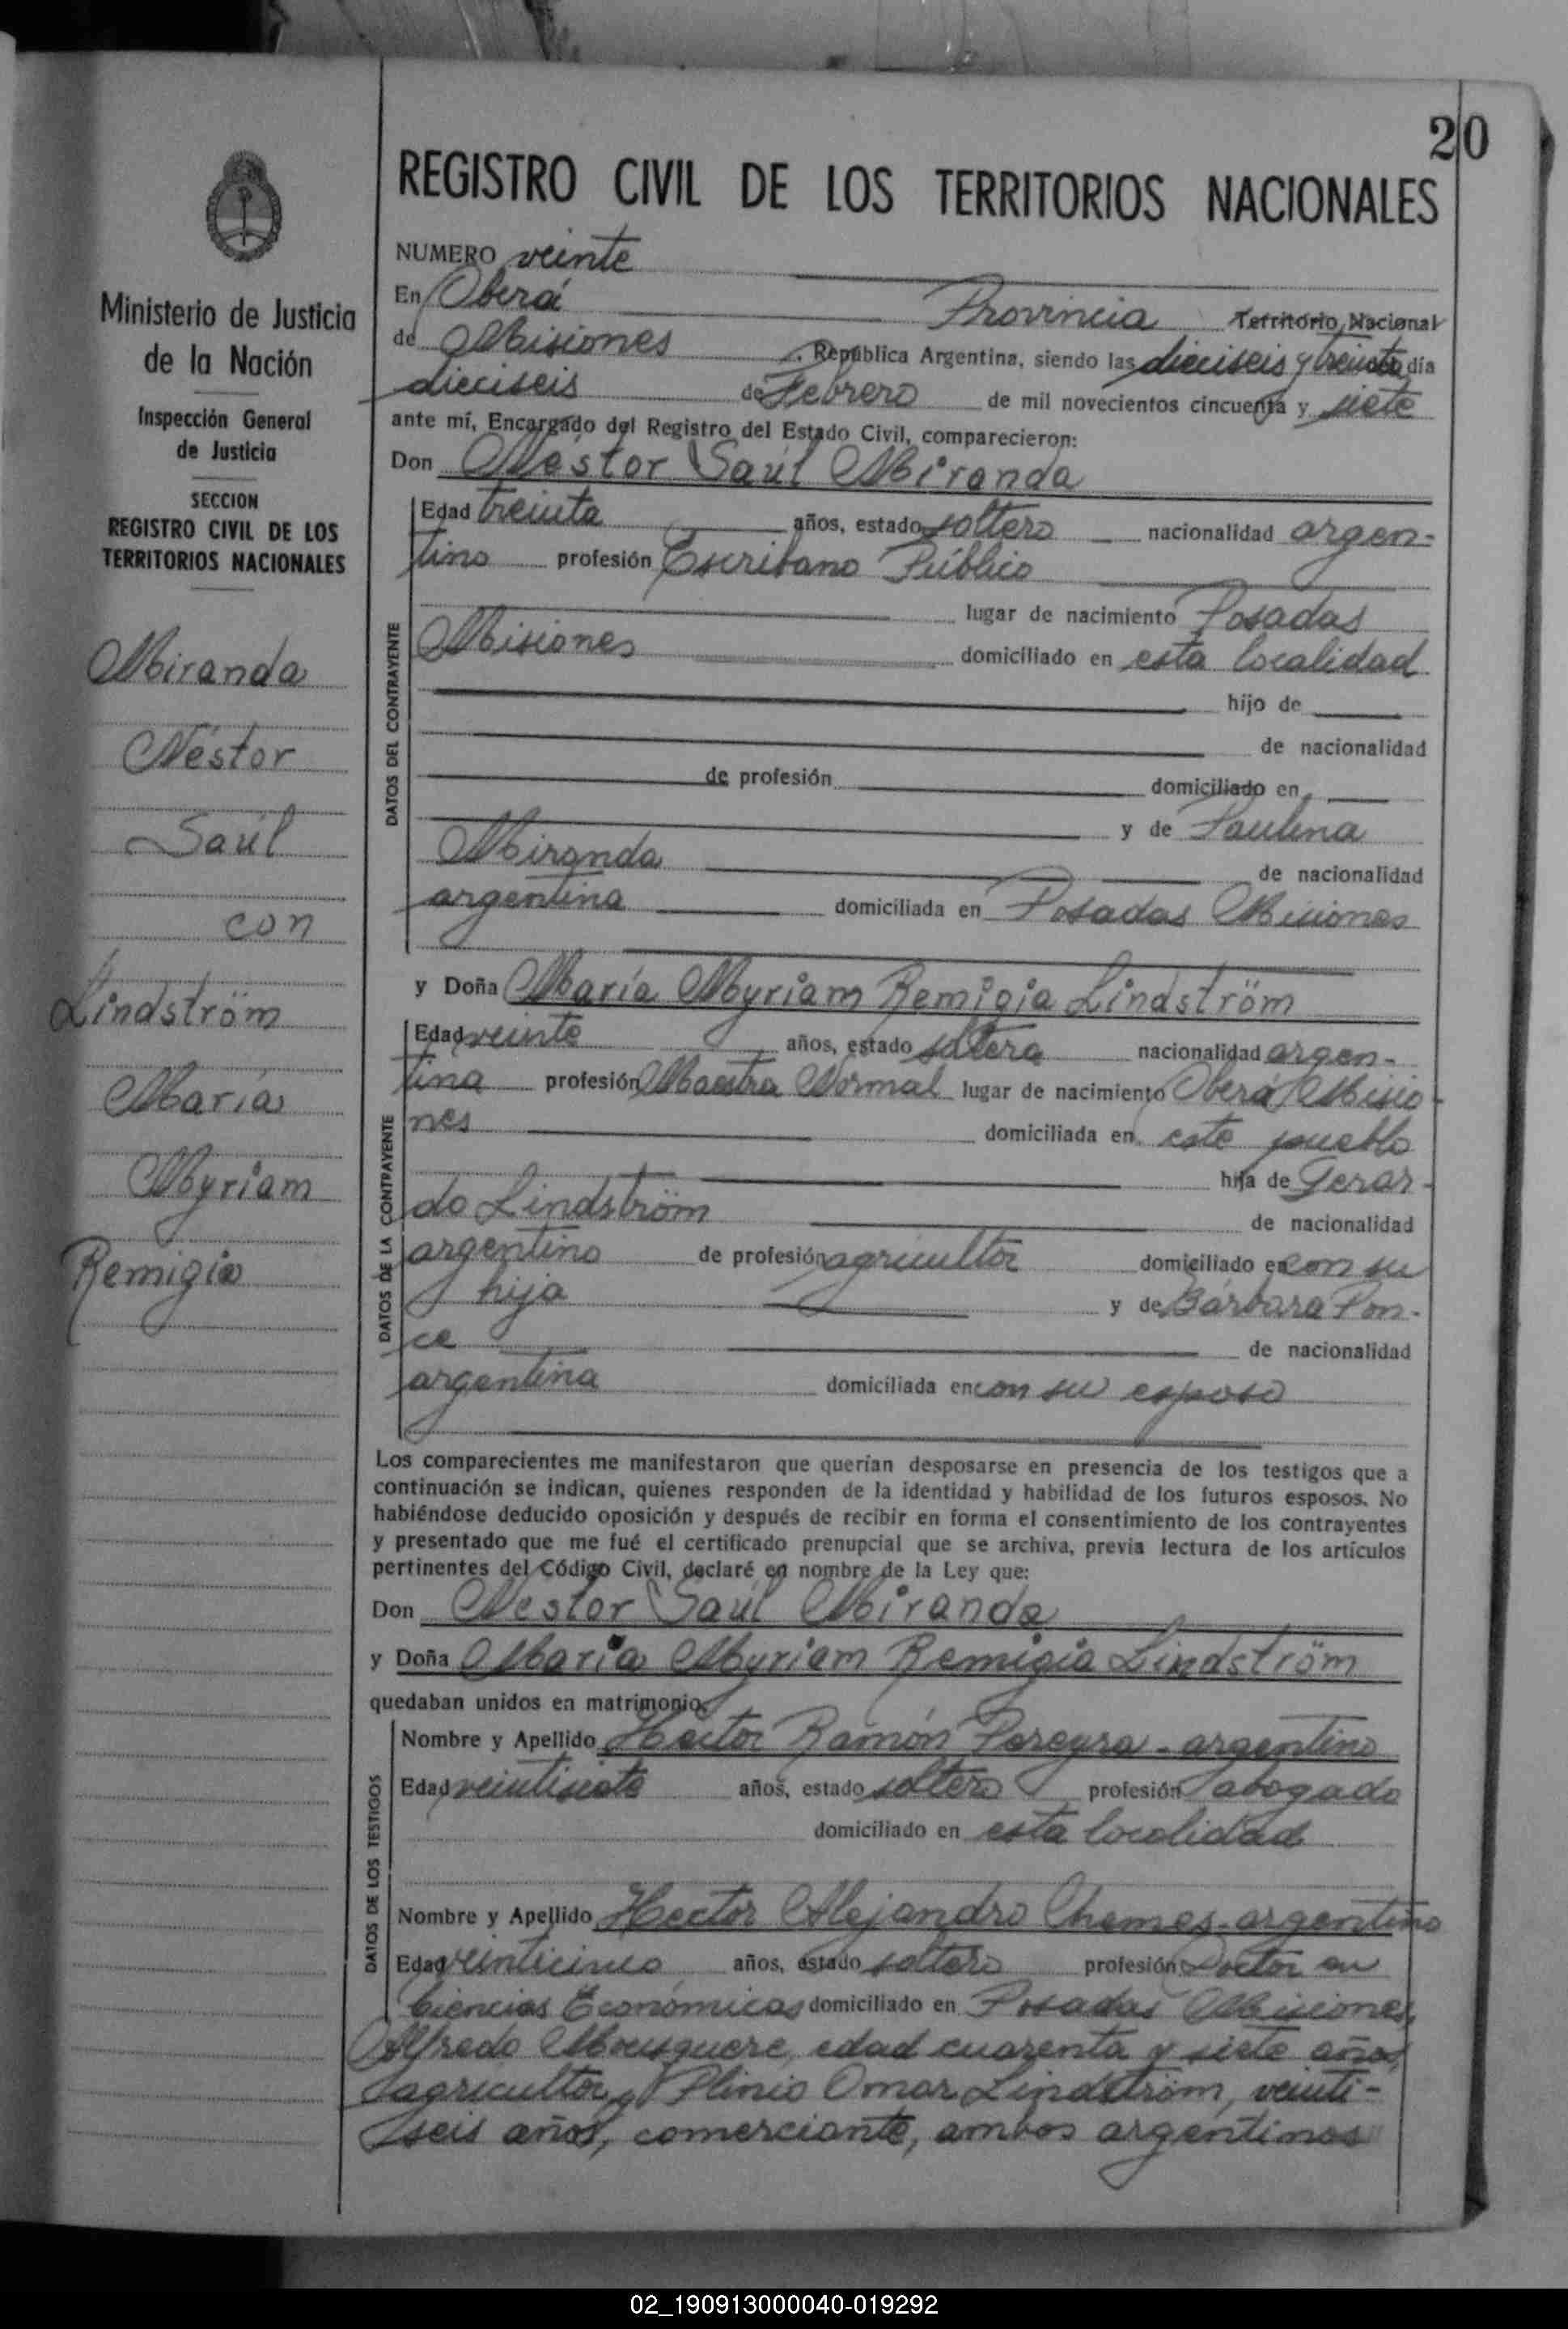 20
REGISTRO CIVIL DE LOS TERRITORIOS NACIONALES
Ministerio de Justicia
de la Nación
Inspección General
de Justicia
SECCION
REGISTRO CIVIL DE LOS
TERRITORIOS NACIONALES
Miranda
Néstor
Saúl
con
Lindström
María
Myriam
Remigia
NUMERO veinte
En Oberá Provincia Territorio Nacional
de Misiones, República Argentina, siendo las dieciseis y treinta día
dieciseis de Febrero de mil novecientos cincuenta y siete
ante mí, Encargado del Registro del Estado Civil, comparecieron:
Don Néstor Saúl Miranda
DATOS DEL CONTRAYENTE
Edad treinta años, estado soltero nacionalidad argen-
tino profesión Escribano Público
lugar de nacimiento Posadas
Misiones domiciliado en esta localidad
hijo de
de nacionalidad
de profesión domiciliado en
y de Paulina
Miranda de nacionalidad
argentina domiciliada en Posadas Misiones
y Doña María Myriam Remigia Lindström
DATOS DE LA CONTRAYENTE
Edad veinte años, estado soltera nacionalidad argen-
tina profesión Maestra Normal lugar de nacimiento Oberá Misio-
nes domiciliada en este pueblo
hija de Gerar-
do Lindström de nacionalidad
argentino de profesión agricultor domiciliado en con su
hija y de Bárbara Pon-
ce de nacionalidad
argentina domiciliada en con su esposo
Los comparecientes me manifestaron que querían desposarse en presencia de los testigos que a
continuación se indican, quienes responden de la identidad y habilidad de los futuros esposos. No
habiéndose deducido oposición y después de recibir en forma el consentimiento de los contrayentes
y presentado que me fué el certificado prenupcial que se archiva, previa lectura de los artículos
pertinentes del Código Civil, declaré en nombre de la Ley que:
Don Nestor Saúl Miranda
y Doña María Myriam Remigia Lindström
quedaban unidos en matrimonio.
DATOS DE LOS TESTIGOS
Nombre y Apellido Hector Ramón Pereyra - argentino
Edad veintisiete años, estado soltero profesión abogado
domiciliado en esta localidad
Nombre y Apellido Hector Alejandro Chemes - argentino
Edad veinticinco años, estado soltero profesión Doctor en
Ciencias Económicas domiciliado en Posadas Misiones,
Alfredo Mousquere, edad cuarenta y siete años,
agricultor, y Plinio Omar Lindström, veinti-
seis años, comerciante, ambos argentinos
02_190913000040-019292